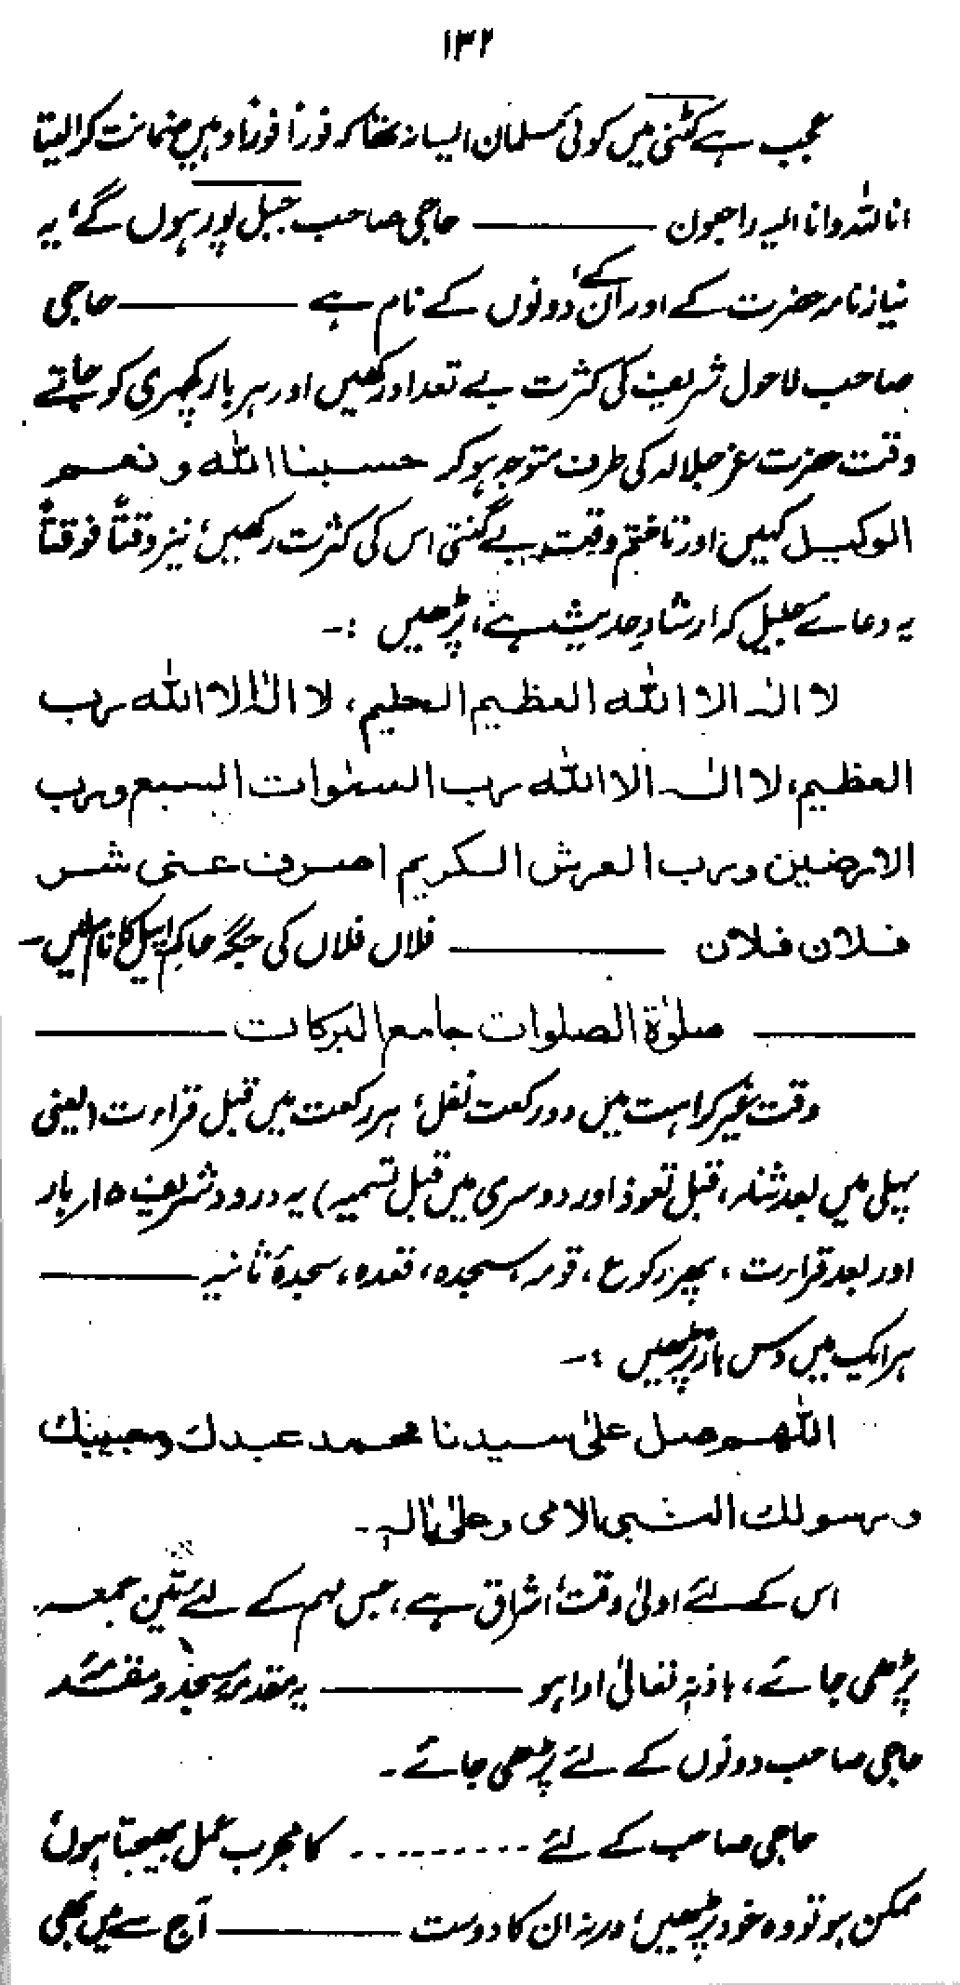 ۱۳۲
عجب ہے کٹنی میں کوئی مسلمان ایسا نہ تھا کہ فوراً فوراً وہیں ضمانت کرا لیتا
انا للہ وانا الیہ راجعون ——— حاجی صاحب جبل پور ہوں گے، یہ
نیاز نامہ حضرت کے اور ان کے، دونوں کے نام ہے ——— حاجی
صاحب لاحول شریف کی کثرت بے تعداد رکھیں اور ہر بار کچہری کو جاتے
وقت حضرت عز جلالہ کی طرف متوجہ ہو کر حسبنا اللہ و نعم
الوکیل کہیں اور تا ختم وقت بے گنتی اس کی کثرت رکھیں، نیز وقتاً فوقتاً
یہ دعائے جلیل کہ ارشاد حدیث ہے، پڑھیں :-
لا الہ الا اللہ العظیم الحلیم، لا الہ الا اللہ رب
العظیم، لا الہ الا اللہ رب السمٰوات السبع ورب
الارضین ورب العرش الکریم اصرف عنی شر
فلان فلان ——— فلاں فلاں کی جگہ حاکم اپیل کا نام لیں۔
——— صلوٰۃ الصلوات جامع البرکات ———
وقت غیر کراہت میں دو رکعت نفل، ہر رکعت میں قبل قراءت (یعنی
پہلی میں بعد ثنا، قبل تعوذ اور دوسری میں قبل تسمیہ) یہ درود شریف ۱۵ بار
اور بعد قراءت، پھر رکوع، قومہ، سجدہ، قعدہ، سجدۂ ثانیہ ———
ہر ایک میں دس بار پڑھیں :-
اللہم صل علیٰ سیدنا محمد عبدک وحبیبک
ورسولک النبی الامی وعلیٰ اٰلہ۔
اس کے لئے اولیٰ وقت اشراق ہے، جس مہم کے لئے تین جمعہ
پڑھی جائے، باذنہ تعالیٰ ادا ہو ——— یہ مقدمہ مسجد و مقدمہ
حاجی صاحب دونوں کے لئے پڑھی جائے۔
حاجی صاحب کے لئے ......... کا مجرب عمل بھیجتا ہوں
ممکن ہو تو وہ خود پڑھیں، ورنہ ان کا دوست ——— آج سے میں بھی